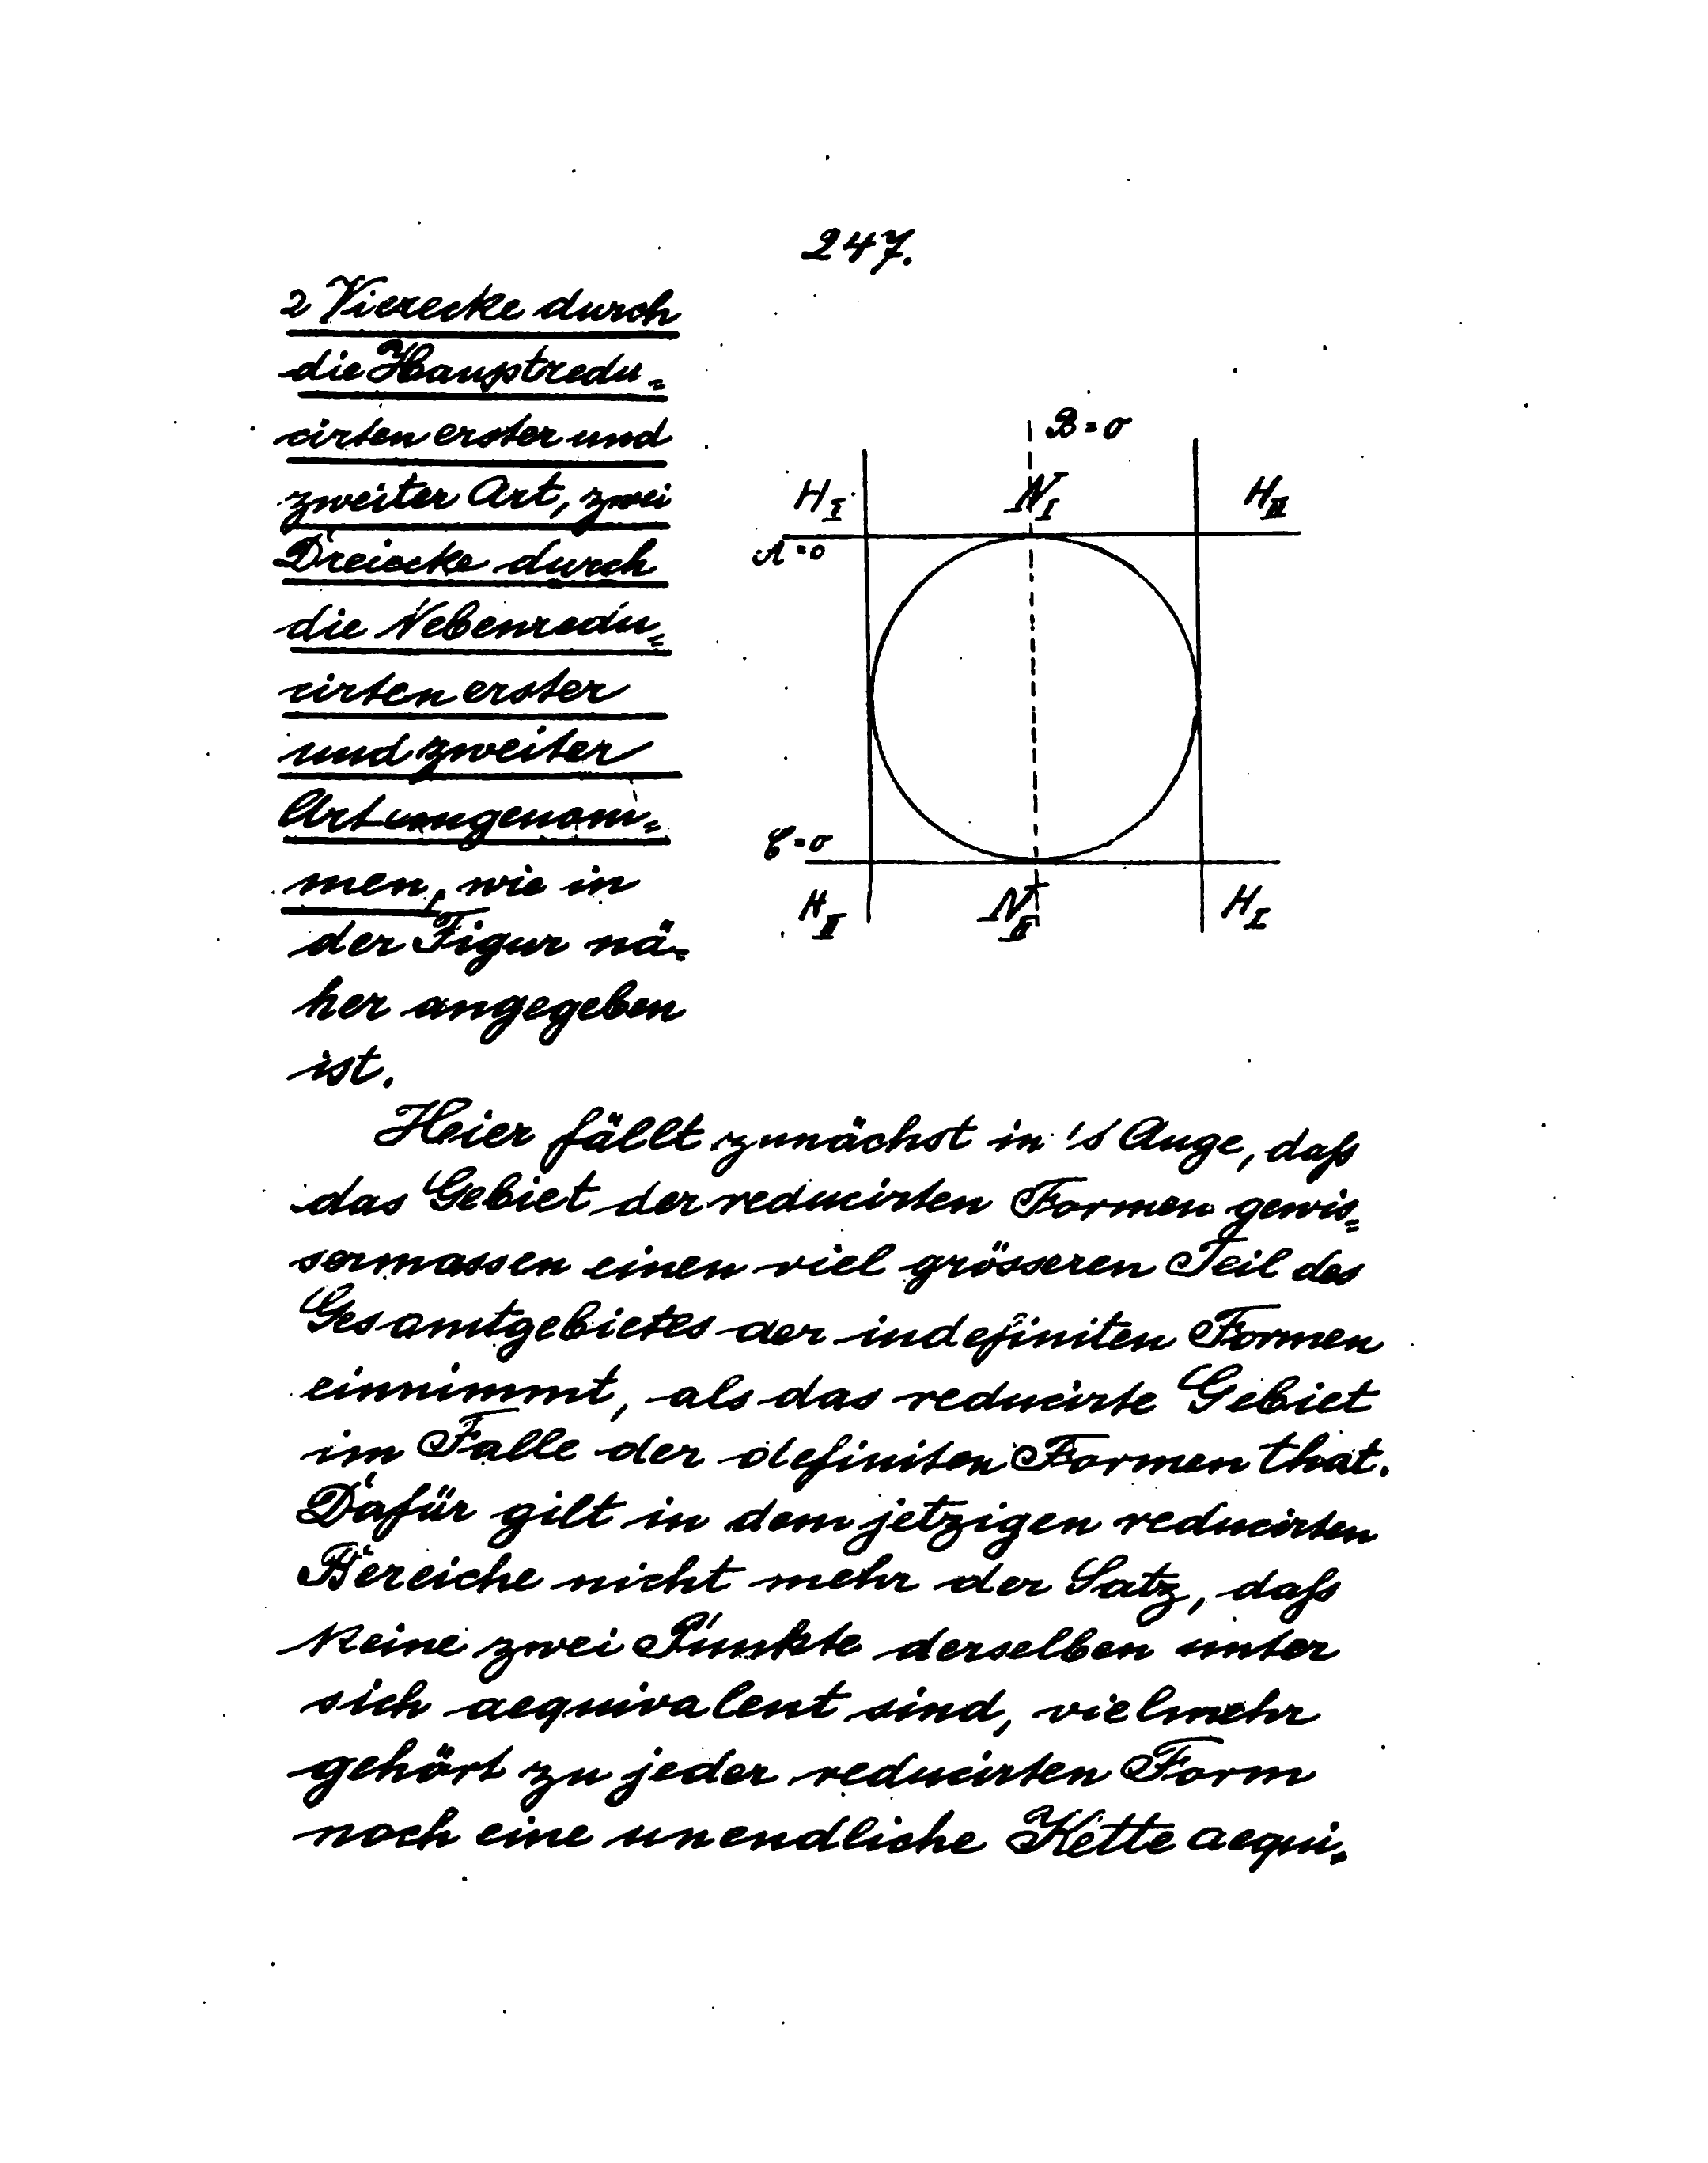 247.
2 Vierecke durch
die Hauptredu-
cirten erster und
zweiter Art, zwei
Dreiecke durch
die Nebenredu-
cirten erster
und zweiter
Art umgenom-
men, wie in
der Figur nä-
her angegeben
ist.
B=0
H_I
N_I
H_II
A=0
C=0
H_II
N_II
H_I
Heier fällt zunächst in's Auge, daß
das Gebiet der reducirten Formen gewis-
sermassen einen viel grösseren Teil des
Gesamtgebietes der indefiniten Formen
einnimmt, als das reducirte Gebiet
im Falle der definiten Formen that.
Dafür gilt in dem jetzigen reducirten
Bereiche nicht mehr der Satz, daß
keine zwei Punkte derselben unter
sich aequivalent sind, vielmehr
gehört zu jeder reducirten Form
noch eine unendliche Kette aequi-